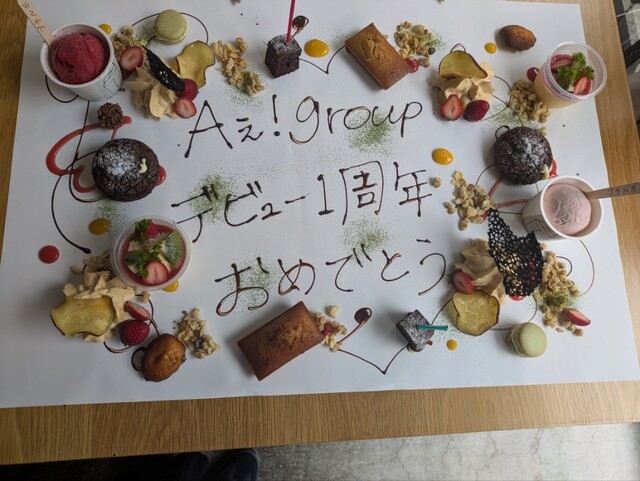 Aぇ! group
デビュー1周年
おめでとう